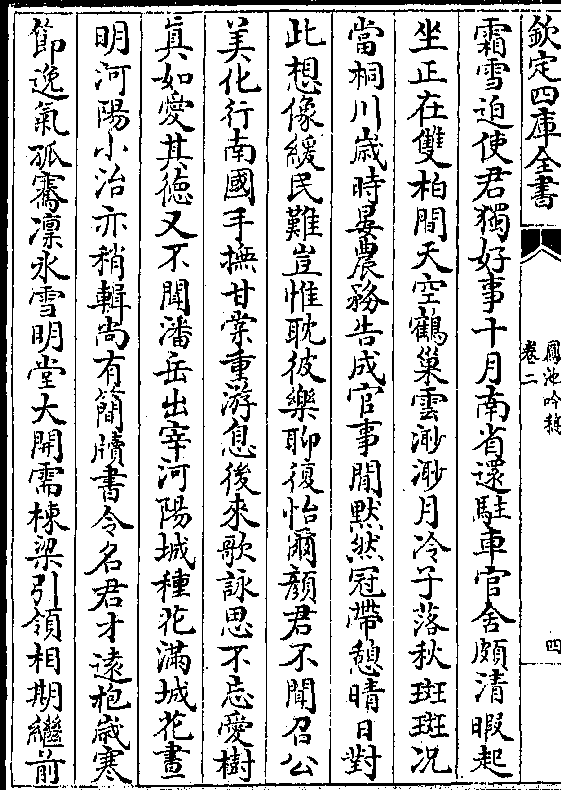 欽定四庫全書
鳳池吟稿
卷二
四
霜雪迫使君獨好事十月南省還駐車官舍頗清暇起
坐正在雙柏間天空鶴巢雲渺渺月冷子落秋斑斑况
當桐川歲時晏農務告成官事閒默然冠帶憩晴日對
此想像緩民難豈惟耽彼樂聊復怡爾顔君不聞召公
美化行南國手撫甘棠重游息後來歌詠思不忘愛樹
真如愛其徳又不聞潘岳出宰河陽城種花滿城花晝
明河陽小治亦稍輯尚有簡牘書令名君才逺抱嵗寒
節逸氣孤騫凜氷雪明堂大開需棟梁引領相期繼前